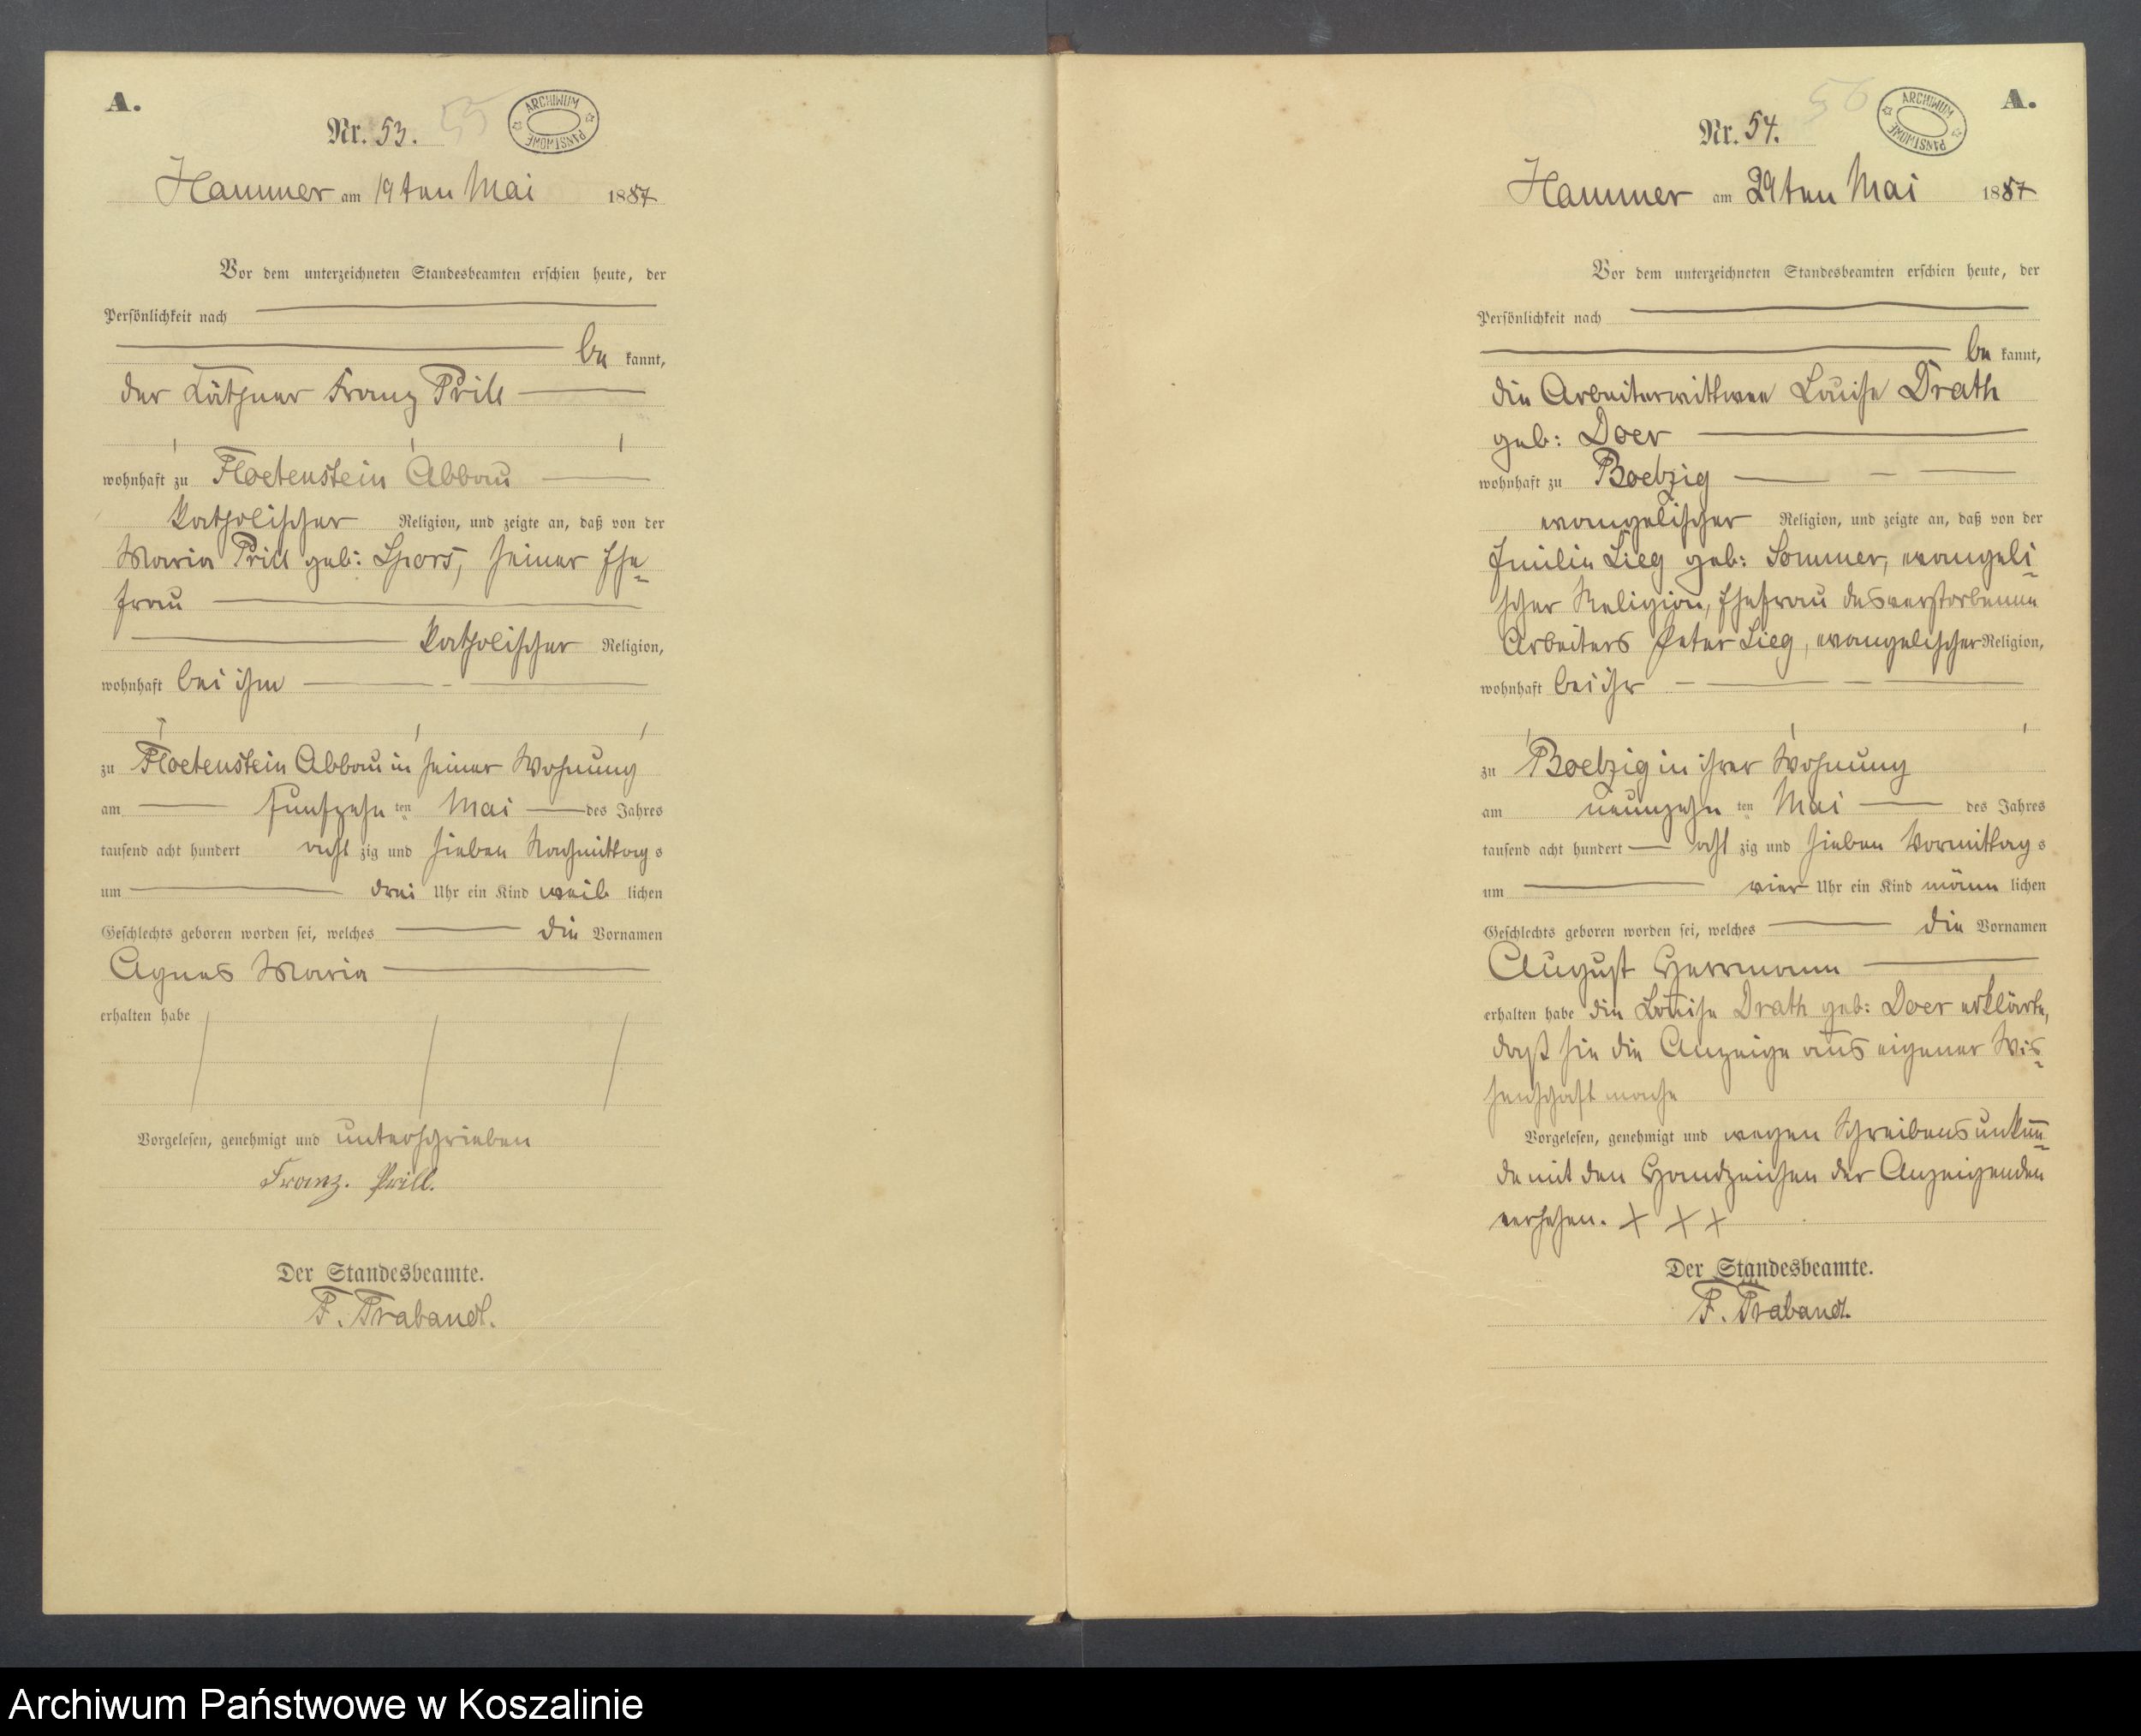 A.
Nr. 53.
55
ARCHIWUM PAŃSTWOWE
Hammer am 19ten Mai 1887
Vor dem unterzeichneten Standesbeamten erschien heute, der
Persönlichkeit nach
be kannt,
der Käthner Franz Prill
wohnhaft zu Floetenstein Abbau
katholischer Religion, und zeigte an, daß von der
Maria Prill geb: Spors, seiner Ehe-
frau
katholischer Religion,
wohnhaft bei ihm
zu Floetenstein Abbau in seiner Wohnung
am fünfzehn ten Mai des Jahres
tausend acht hundert acht zig und sieben Nachmittag s
um drei Uhr ein Kind weib lichen
Geschlechts geboren worden sei, welches die Vornamen
Agnes Maria
erhalten habe
Vorgelesen, genehmigt und unterschrieben
Franz. Prill.
Der Standesbeamte.
F. Trabandt.
A.
Nr. 54.
56
ARCHIWUM PAŃSTWOWE
Hammer am 29ten Mai 1887
Vor dem unterzeichneten Standesbeamten erschien heute, der
Persönlichkeit nach
be kannt,
die Arbeiterwittwee Louise Drath
geb: Doer
wohnhaft zu Boelzig
evangelischer Religion, und zeigte an, daß von der
Emilie Lieg geb: Sommer, evangeli-
scher Religion, Ehefrau des verstorbenen
Arbeiters Peter Lieg, evangelischer Religion,
wohnhaft bei ihr
zu Boelzig in ihrer Wohnung
am neunzehn ten Mai des Jahres
tausend acht hundert acht zig und sieben Vormittag s
um vier Uhr ein Kind männ lichen
Geschlechts geboren worden sei, welches die Vornamen
August Herrmann
erhalten habe die Louise Drath geb: Doer erklärte,
daß sie die Anzeige aus eigener Wis-
senschaft mache
Vorgelesen, genehmigt und wegen Schreibensunkun-
de mit den Handzeichen der Anzeigenden
versehen. X X X
Der Standesbeamte.
F. Trabandt.
Archiwum Państwowe w Koszalinie